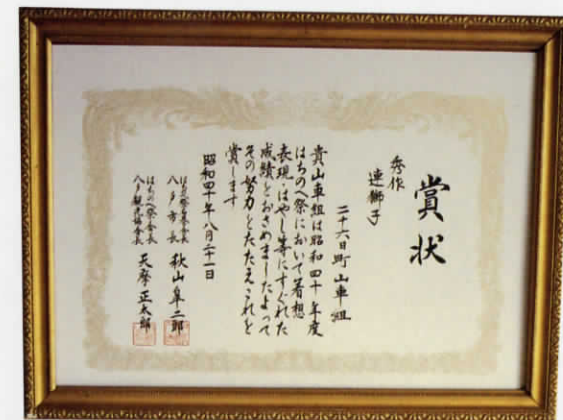 賞状
秀作
連獅子
二十六日町山車組
貴山車組は昭和四十年度
はちのへ祭において着想
表現・はやし等にすぐれた
成績をおさめましたよって
その努力をたたえこれを
賞します
昭和四十年八月二十一日
八戸市長 秋山皐二郎
はちのへ祭会長
八戸観光協会長 天摩正太郎